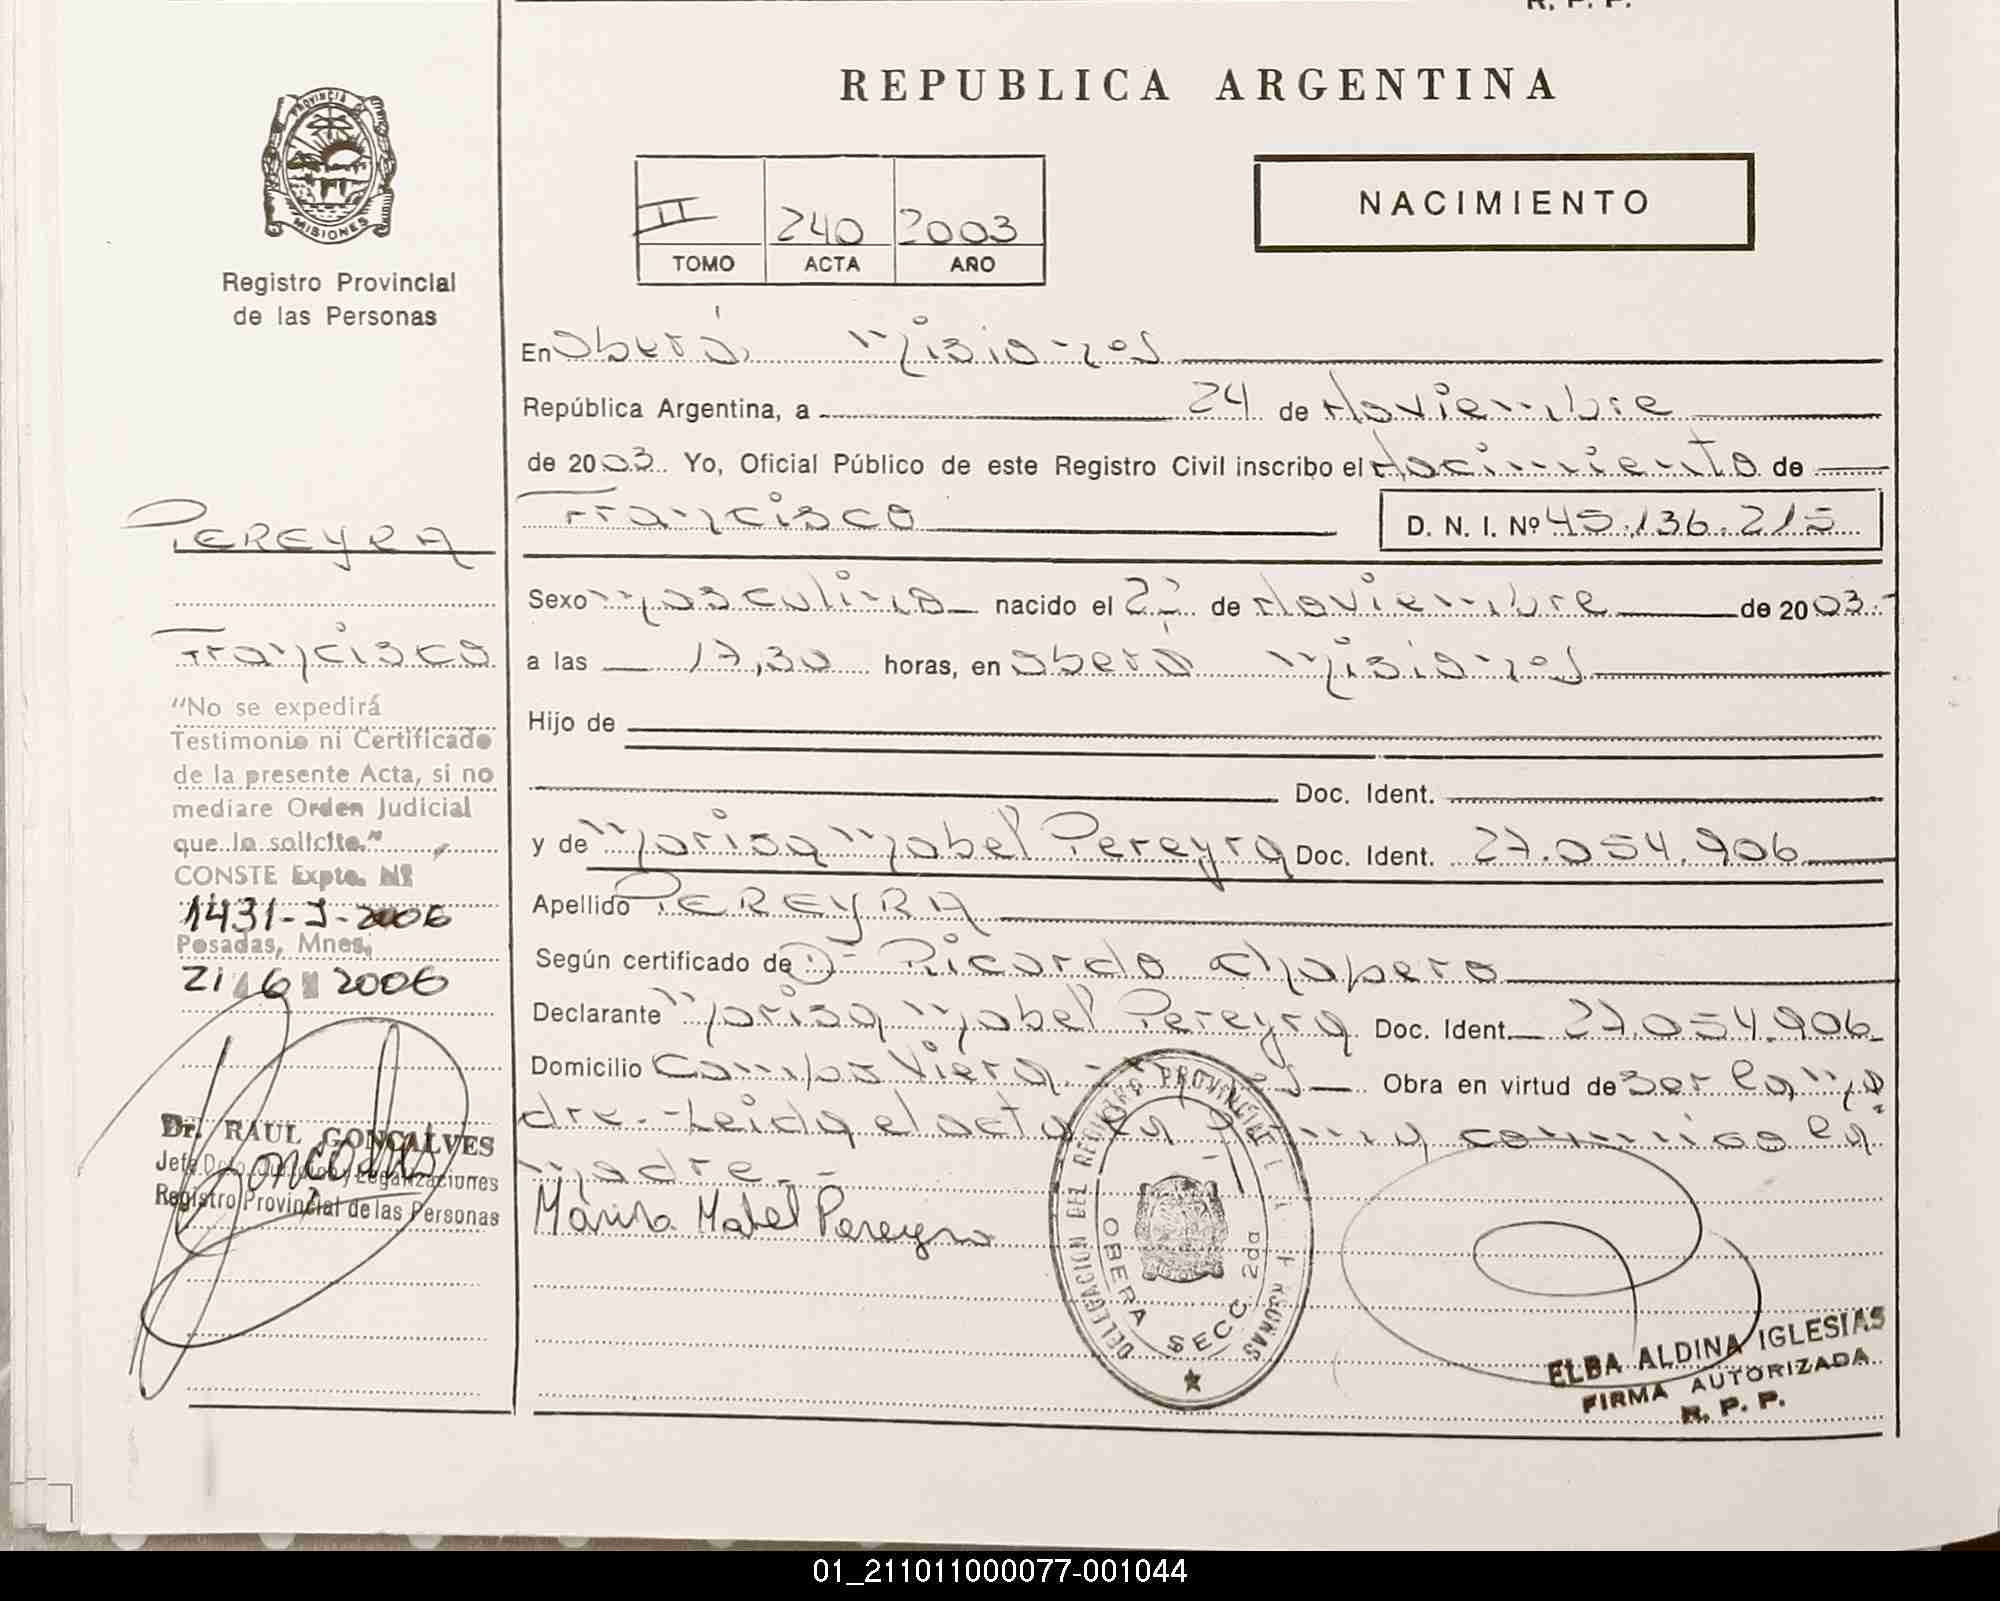 R. P. P.
REPUBLICA ARGENTINA
PROVINCIA
MISIONES
Registro Provincial
de las Personas
II 240 2003
TOMO ACTA AÑO
NACIMIENTO
En Oberá, Misiones
República Argentina, a 24 de Noviembre
de 2003. Yo, Oficial Público de este Registro Civil inscribo el Nacimiento de
Francisco
D. N. I. Nº 45.136.215
Sexo Masculino nacido el 22 de Noviembre de 2003.-
a las 17,30 horas, en Oberá Misiones
Hijo de
Doc. Ident.
y de Marisa Mabel Pereyra Doc. Ident. 27.054.906
Apellido PEREYRA
Según certificado de Dr Ricardo Chapero
Declarante Marisa Mabel Pereyra Doc. Ident. 27.054.906.
Domicilio Campo Viera - Obra en virtud de ser la ma
dre.- Leida el acta la conmigo la
madre.-
Marisa Mabel Pereyra
PEREYRA
Francisco
"No se expedirá
Testimonio ni Certificado
de la presente Acta, si no
mediare Orden Judicial
que lo solicite."
CONSTE Expte. Nº
1431-J-2006
Posadas, Mnes,
21 6 2006
Dr. RAUL GONCALVES
Jefe Dpto. Legalizaciones
Registro Provincial de las Personas
DELEGACION DEL REGISTRO PROVINCIAL
OBERA SECC. 2da
ELBA ALDINA IGLESIAS
FIRMA AUTORIZADA
R. P. P.
01_211011000077-001044